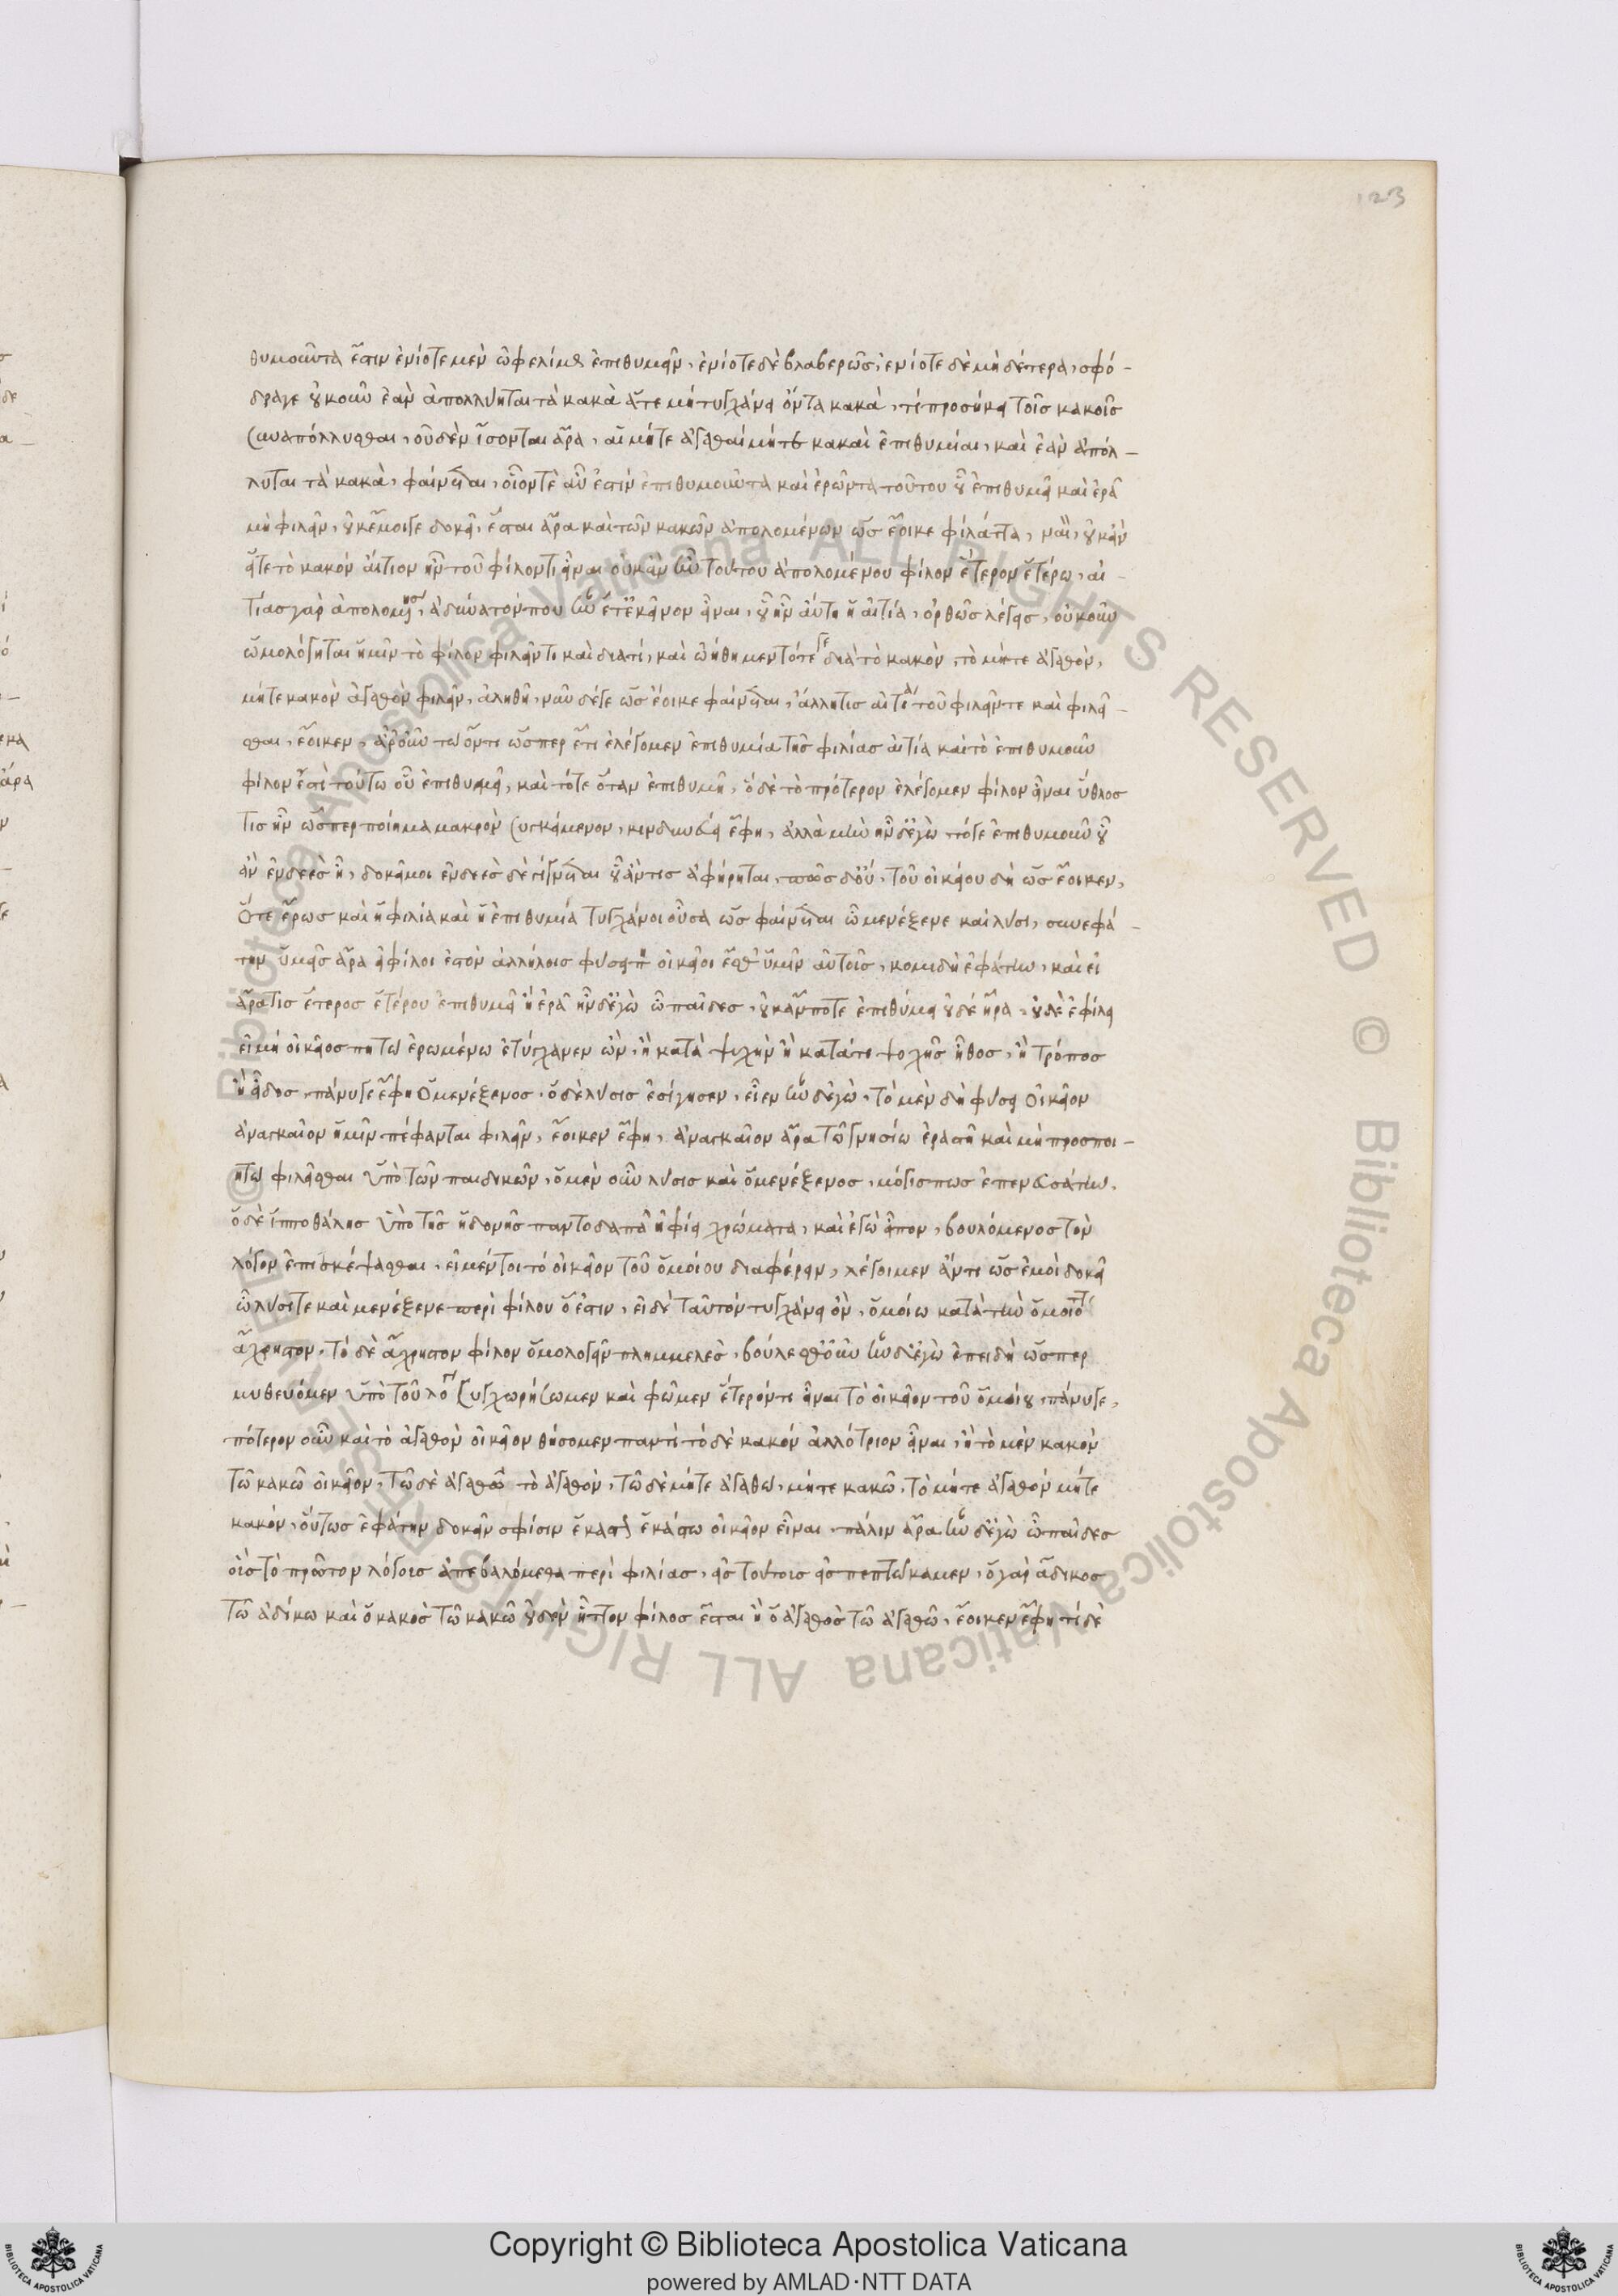 123
θυμοῦντα ἔστιν ἐνίοτε μὲν ὠφελίμως ἐπιθυμεῖν, ἐνίοτε δὲ βλαβερῶς, ἐνίοτε δὲ μηδέτερα, σφό-
δρα γε οὐκοῦν ἐὰν ἀπολλύηται τὰ κακὰ ἅτε μὴ τυγχάνει ὄντα κακὰ, τί προσήκει τοῖς κακοῖς
συναπόλλυσθαι, οὐδὲν ἔσονται ἄρα, αἱ μήτε ἀγαθαὶ μήτε κακαὶ ἐπιθυμίαι, καὶ ἐὰν ἀπόλ-
λυται τὰ κακὰ, φαίνεται, οἷόν τε οὖν ἐστὶν ἐπιθυμοῦντα καὶ ἐρῶντα τούτου οὗ ἐπιθυμεῖ καὶ ἐρᾶ
μὴ φιλεῖν, οὐκ ἔμοιγε δοκεῖ, ἔσται ἄρα καὶ τῶν κακῶν ἀπολομένων ὡς ἔοικε φίλ' ἄττα, ναὶ, οὐκ ἂν
εἴτε τὸ κακὸν αἴτιον ἦν τοῦ φίλον τι εἶναι οὐκ ἂν ἦν τούτου ἀπολομένου φίλον ἕτερον ἑτέρω, αἰ-
τίας γὰρ ἀπολομένης, ἀδύνατόν που ἦν ἔτ' ἐκεῖνον εἶναι, οὗ ἦν αὕτη ἡ αἰτία, ὀρθῶς λέγεις, οὐκοῦν
ὡμολόγηται ἡμῖν τὸ φίλον φιλεῖν τι καὶ διατί, καὶ ὠήθημεν τότε γε διὰ τὸ κακὸν, τὸ μήτε ἀγαθὸν,
μήτε κακὸν ἀγαθὸν φιλεῖν, ἀληθῆ, νῦν δέ γε ὡς ἔοικε φαίνεται, ἄλλη τις αἰτία τοῦ φιλεῖν τε καὶ φιλεῖ-
σθαι, ἔοικεν, ἆρ' οὖν τω ὄντι ὥσπερ ἔτι ἐλέγομεν ἐπιθυμία τῆς φιλίας αἰτία καὶ τὸ ἐπιθυμοῦν
φίλον ἐστὶ τούτω οὗ ἐπιθυμεῖ, καὶ τότε ὅταν ἐπιθυμῆ, ὃ δὲ τὸ πρότερον ἐλέγομεν φίλον εἶναι ὕθλος
τις ἦν ὥσπερ ποίημα μακρὸν συγκείμενον, κινδυνεύει ἔφη, ἀλλὰ μὴν ἦν δ' ἐγὼ τό γε ἐπιθυμοῦν οὗ
ἂν ἐνδεὲς ἦ, δοκεῖ μοι ἐνδεὲς δὲ γίγνεται οὗ ἄν τις ἀφήρηται, πῶς δ' οὔ, τοῦ οἰκείου δὴ ὡς ἔοικεν,
ὅτε ἔρως καὶ ἡ φιλία καὶ ἡ ἐπιθυμία τυγχάνοι οὖσα ὡς φαίνεται ὦ μενέξενε καὶ λύσι, συνεφά-
την ὑμεῖς ἄρα εἰ φίλοι ἐστὸν ἀλλήλοις φύσει πη οἰκεῖοι ἔσθ' ὑμῖν αὐτοῖς, κομιδῆ ἐφάτην, καὶ εἰ
ἄρα τις ἕτερος ἑτέρου ἐπιθυμεῖ ἢ ἐρᾶ ἦν δ' ἐγὼ ὦ παῖδες, οὐκ ἄν ποτε ἐπιθύμει οὐδὲ ἤρα, οὐδὲ ἐφίλει
εἰ μὴ οἰκεῖος πη τω ἐρωμένω ἐτύγχανεν ὢν, ἢ κατὰ ψυχὴν ἢ κατά τι ψυχῆς ἦθος, ἢ τρόπος
ἢ εἶδος, πάνυ γε ἔφη ὁ μενέξενος, ὁ δὲ λύσις ἐσίγησεν, εἶεν ἦν δ' ἐγὼ, τὸ μὲν δὴ φύσει οἰκεῖον
ἀναγκαῖον ἡμῖν πέφανται φιλεῖν, ἔοικεν ἔφη, ἀναγκαῖον ἄρα τῶ γνησίω ἐραστῆ καὶ μὴ προσποι-
ήτω φιλεῖσθαι ὑπὸ τῶν παιδικῶν, ὁ μὲν οὖν λύσις καὶ ὁ μενέξενος, μόγις πως ἐπενευσάτην,
ὁ δὲ ἱπποθάλης ὑπὸ τῆς ἡδονῆς παντοδαπὰ ἠφίει χρώματα, καὶ ἐγὼ εἶπον, βουλόμενος τὸν
λόγον ἐπισκέψασθαι, εἰ μέν τοι τὸ οἰκεῖον τοῦ ὁμοίου διαφέρειν, λέγοιμεν ἄν τι ὡς ἐμοὶ δοκεῖ
ὦ λύσι τε καὶ μενέξενε περὶ φίλου ὅ ἐστιν, εἰ δὲ ταὐτὸν τυγχάνει ὂν, ὁμοίω κατὰ τὴν ὁμοιότητα
ἄχρηστον, τὸ δὲ ἄχρηστον φίλον ὁμολογεῖν πλημμελὲς, βούλεσθ' οὖν ἦν δ' ἐγὼ ἐπειδὴ ὥσπερ
μυθευόμεν ὑπὸ τοῦ λόγου συγχωρήσωμεν καὶ φῶμεν ἕτερόν τι εἶναι τὸ οἰκεῖον τοῦ ὁμοίου, πάνυ γε,
πότερον οὖν καὶ τὸ ἀγαθὸν οἰκεῖον θήσομεν παντὶ τὸ δὲ κακὸν ἀλλότριον εἶναι, ἢ τὸ μὲν κακὸν
τῶ κακῶ οἰκεῖον, τῶ δὲ ἀγαθῶ τὸ ἀγαθὸν, τῶ δὲ μήτε ἀγαθω, μήτε κακῶ, τὸ μήτε ἀγαθὸν μήτε
κακόν, οὕτως ἐφάτην δοκεῖν σφίσιν ἕκαστον ἑκάστω οἰκεῖον εἶναι, πάλιν ἄρα ἦν δ' ἐγὼ ὦ παῖδες
οἷς τὸ πρῶτον λόγοις ἀπεβαλόμεθα περὶ φιλίας, εἰς τούτοις εἰς πεπτώκαμεν, ὁ γὰρ ἄδικος
τῶ ἀδίκω καὶ ὁ κακὸς τῶ κακῶ οὐδὲν ἧττον φίλος ἔσται ἢ ὁ ἀγαθὸς τῶ ἀγαθῶ, ἔοικεν ἔφη τί δὲ
© Biblioteca Apostolica Vaticana ALL RIGHTS RESERVED © Biblioteca Apostolica Vaticana ALL RIGHTS RESERVED
Copyright © Biblioteca Apostolica Vaticana
powered by AMLAD·NTT DATA